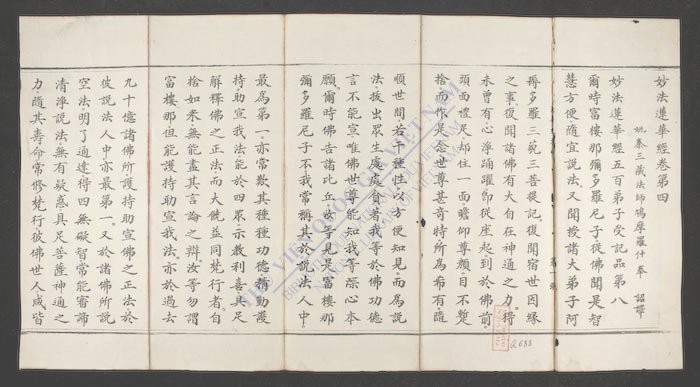 妙法蓮華經卷第四
姚秦三藏法師鳩摩羅什奉 詔譯
妙法蓮華經五百弟子受記品第八
爾時富樓那彌多羅尼子從佛聞是智
慧方便隨宜說法又聞授諸大弟子阿
耨多羅三藐三菩提記復聞宿世因緣
之事復聞諸佛有大自在神通之力得
未曾有心淨踊躍即從座起到於佛前
頭面禮足却住一面瞻仰尊顏目不蹔
捨而作是念世尊甚奇特所為希有隨
順世間若干種性以方便知見而為說
法拔出眾生處處貪著我等於佛功德
言不能宣唯佛世尊能知我等深心本
願爾時佛告諸比丘汝等見是富樓那
彌多羅尼子不我常稱其於說法人中
最為第一亦常歎其種種功德精勤護
持助宣我法能於四眾示教利喜具足
解釋佛之正法而大饒益同梵行者自
捨如來無能盡其言論之辯汝等勿謂
富樓那但能護持助宣我法亦於過去
九十億諸佛所護持助宣佛之正法於
彼說法人中亦最第一又於諸佛所說
空法明了通達得四無礙智常能審諦
清淨說法無有疑惑具足菩薩神通之
力隨其壽命常修梵行彼佛世人咸皆
THƯ VIỆN QUỐC GIA VIỆT NAM